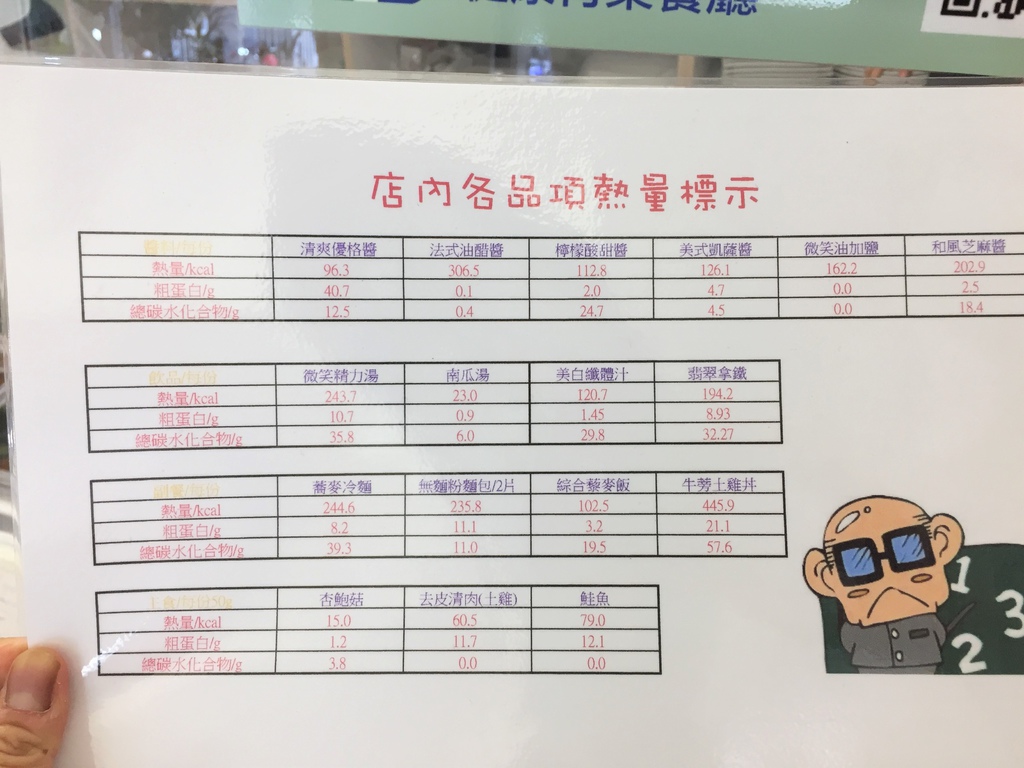 餐廳
店內各品項熱量標示
醬料/每份 清爽優格醬 法式油醋醬 檸檬酸甜醬 美式凱薩醬 微笑油加鹽 和風芝麻醬
熱量/kcal 96.3 306.5 112.8 126.1 162.2 202.9
粗蛋白/g 40.7 0.1 2.0 4.7 0.0 2.5
總碳水化合物/g 12.5 0.4 24.7 4.5 0.0 18.4
飲品/每份 微笑精力湯 南瓜湯 美白纖體汁 翡翠拿鐵
熱量/kcal 243.7 23.0 120.7 194.2
粗蛋白/g 10.7 0.9 1.45 8.93
總碳水化合物/g 35.8 6.0 29.8 32.27
副餐/每份 蕎麥冷麵 無麵粉麵包/2片 綜合藜麥飯 牛蒡土雞丼
熱量/kcal 244.6 235.8 102.5 445.9
粗蛋白/g 8.2 11.1 3.2 21.1
總碳水化合物/g 39.3 11.0 19.5 57.6
主食/每份50g 杏鮑菇 去皮清肉(土雞) 鮭魚
熱量/kcal 15.0 60.5 79.0
粗蛋白/g 1.2 11.7 12.1
總碳水化合物/g 3.8 0.0 0.0
1
3
2